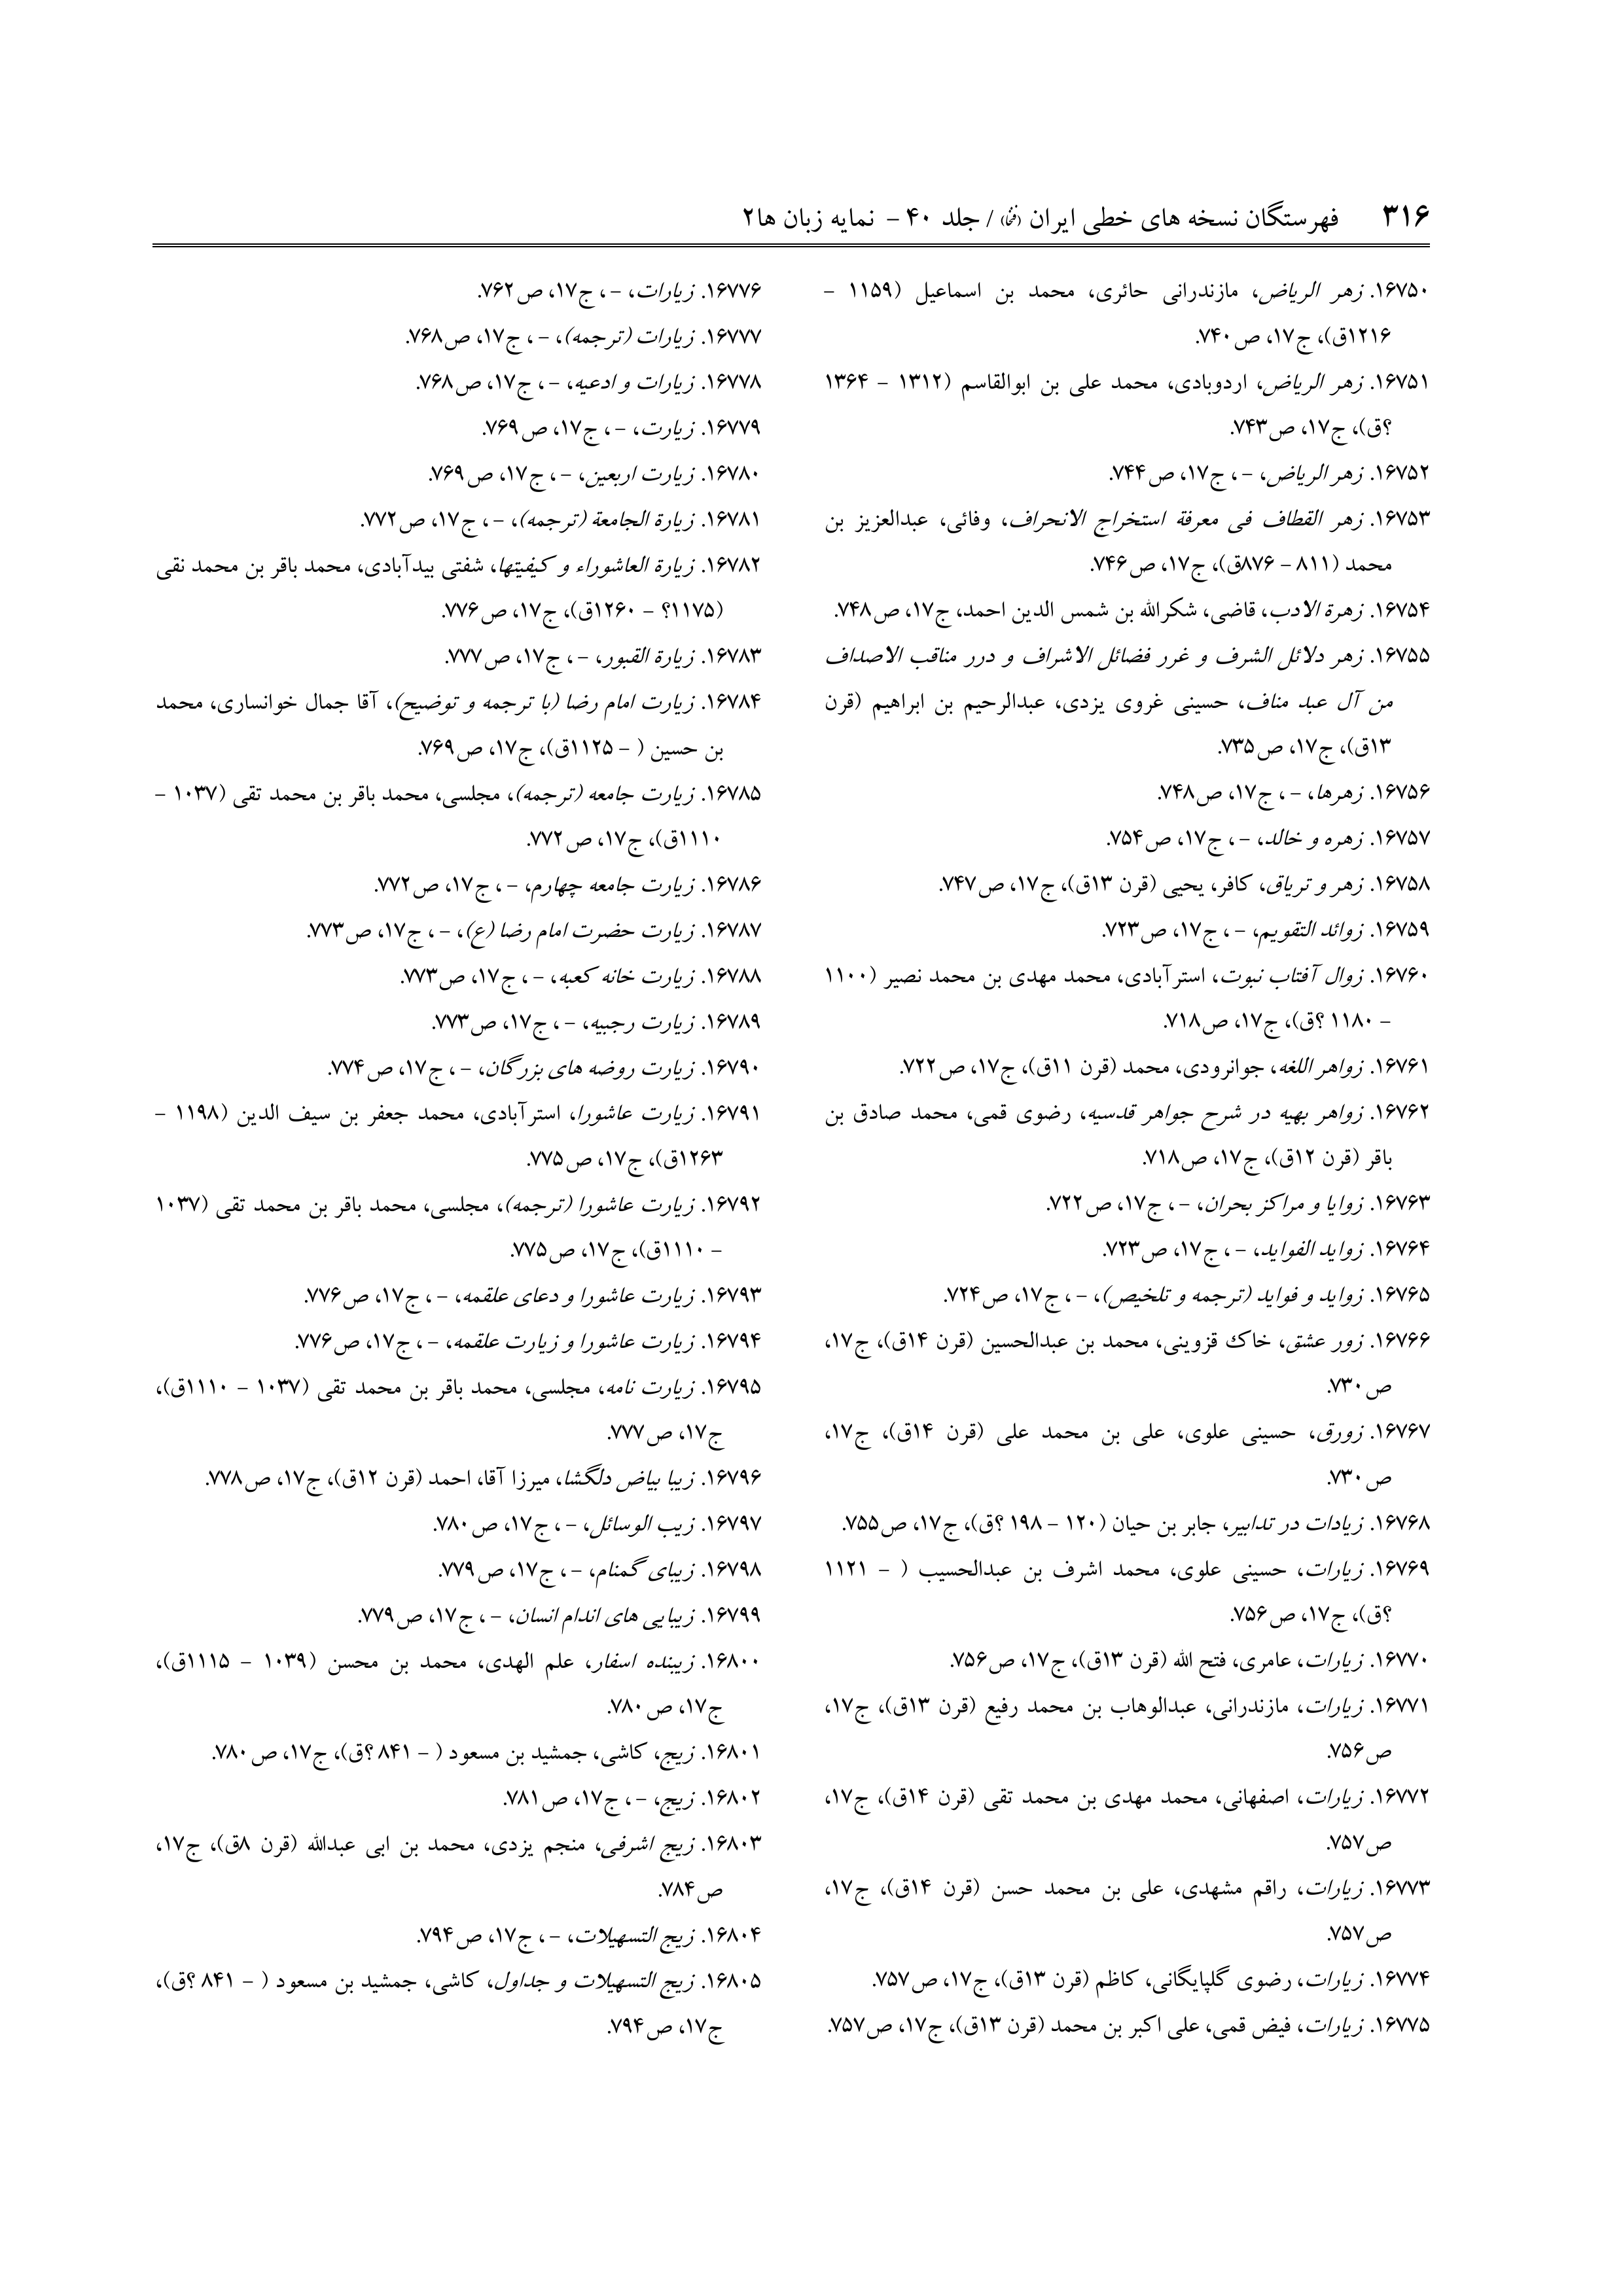 ۳۱۶ فهرستگان نسخه های خطی ایران (فنخا) / جلد ۴۰ – نمایه زبان ها۲
۱۶۷۵۰. زهر الریاض، مازندرانی حائری، محمد بن اسماعیل (۱۱۵۹ –
۱۲۱۶ق)، ج۱۷، ص۷۴۰.
۱۶۷۵۱. زهر الریاض، اردوبادی، محمد علی بن ابوالقاسم (۱۳۱۲ – ۱۳۶۴
؟ق)، ج۱۷، ص۷۴۳.
۱۶۷۵۲. زهر الریاض، –، ج۱۷، ص۷۴۴.
۱۶۷۵۳. زهر القطاف فی معرفة استخراج الانحراف، وفائی، عبدالعزیز بن
محمد (۸۱۱ – ۸۷۶ق)، ج۱۷، ص۷۴۶.
۱۶۷۵۴. زهرة الادب، قاضی، شکرالله بن شمس الدین احمد، ج۱۷، ص۷۴۸.
۱۶۷۵۵. زهر دلائل الشرف و غرر فضائل الاشراف و درر مناقب الاصداف
من آل عبد مناف، حسینی غروی یزدی، عبدالرحیم بن ابراهیم (قرن
۱۳ق)، ج۱۷، ص۷۳۵.
۱۶۷۵۶. زهرها، –، ج۱۷، ص۷۴۸.
۱۶۷۵۷. زهره و خالد، –، ج۱۷، ص۷۵۴.
۱۶۷۵۸. زهر و تریاق، کافر، یحیی (قرن ۱۳ق)، ج۱۷، ص۷۴۷.
۱۶۷۵۹. زوائد التقویم، –، ج۱۷، ص۷۲۳.
۱۶۷۶۰. زوال آفتاب نبوت، استرآبادی، محمد مهدی بن محمد نصیر (۱۱۰۰
– ۱۱۸۰ ؟ق)، ج۱۷، ص۷۱۸.
۱۶۷۶۱. زواهر اللغه، جوانرودی، محمد (قرن ۱۱ق)، ج۱۷، ص۷۲۲.
۱۶۷۶۲. زواهر بهیه در شرح جواهر قدسیه، رضوی قمی، محمد صادق بن
باقر (قرن ۱۲ق)، ج۱۷، ص۷۱۸.
۱۶۷۶۳. زوایا و مراکز بحران، –، ج۱۷، ص۷۲۲.
۱۶۷۶۴. زواید الفواید، –، ج۱۷، ص۷۲۳.
۱۶۷۶۵. زواید و فواید (ترجمه و تلخیص)، –، ج۱۷، ص۷۲۴.
۱۶۷۶۶. زور عشق، خاک قزوینی، محمد بن عبدالحسین (قرن ۱۴ق)، ج۱۷،
ص۷۳۰.
۱۶۷۶۷. زورق، حسینی علوی، علی بن محمد علی (قرن ۱۴ق)، ج۱۷،
ص۷۳۰.
۱۶۷۶۸. زیادات در تدابیر، جابر بن حیان (۱۲۰ – ۱۹۸ ؟ق)، ج۱۷، ص۷۵۵.
۱۶۷۶۹. زیارات، حسینی علوی، محمد اشرف بن عبدالحسیب ( – ۱۱۲۱
؟ق)، ج۱۷، ص۷۵۶.
۱۶۷۷۰. زیارات، عامری، فتح الله (قرن ۱۳ق)، ج۱۷، ص۷۵۶.
۱۶۷۷۱. زیارات، مازندرانی، عبدالوهاب بن محمد رفیع (قرن ۱۳ق)، ج۱۷،
ص۷۵۶.
۱۶۷۷۲. زیارات، اصفهانی، محمد مهدی بن محمد تقی (قرن ۱۴ق)، ج۱۷،
ص۷۵۷.
۱۶۷۷۳. زیارات، راقم مشهدی، علی بن محمد حسن (قرن ۱۴ق)، ج۱۷،
ص۷۵۷.
۱۶۷۷۴. زیارات، رضوی گلپایگانی، کاظم (قرن ۱۳ق)، ج۱۷، ص۷۵۷.
۱۶۷۷۵. زیارات، فیض قمی، علی اکبر بن محمد (قرن ۱۳ق)، ج۱۷، ص۷۵۷.
۱۶۷۷۶. زیارات، –، ج۱۷، ص۷۶۲.
۱۶۷۷۷. زیارات (ترجمه)، –، ج۱۷، ص۷۶۸.
۱۶۷۷۸. زیارات و ادعیه، –، ج۱۷، ص۷۶۸.
۱۶۷۷۹. زیارت، –، ج۱۷، ص۷۶۹.
۱۶۷۸۰. زیارت اربعین، –، ج۱۷، ص۷۶۹.
۱۶۷۸۱. زیارة الجامعة (ترجمه)، –، ج۱۷، ص۷۷۲.
۱۶۷۸۲. زیارة العاشوراء و کیفیتها، شفتی بیدآبادی، محمد باقر بن محمد نقی
(۱۱۷۵؟ – ۱۲۶۰ق)، ج۱۷، ص۷۷۶.
۱۶۷۸۳. زیارة القبور، –، ج۱۷، ص۷۷۷.
۱۶۷۸۴. زیارت امام رضا (با ترجمه و توضیح)، آقا جمال خوانساری، محمد
بن حسین ( – ۱۱۲۵ق)، ج۱۷، ص۷۶۹.
۱۶۷۸۵. زیارت جامعه (ترجمه)، مجلسی، محمد باقر بن محمد تقی (۱۰۳۷ –
۱۱۱۰ق)، ج۱۷، ص۷۷۲.
۱۶۷۸۶. زیارت جامعه چهارم، –، ج۱۷، ص۷۷۲.
۱۶۷۸۷. زیارت حضرت امام رضا (ع)، –، ج۱۷، ص۷۷۳.
۱۶۷۸۸. زیارت خانه کعبه، –، ج۱۷، ص۷۷۳.
۱۶۷۸۹. زیارت رجبیه، –، ج۱۷، ص۷۷۳.
۱۶۷۹۰. زیارت روضه های بزرگان، –، ج۱۷، ص۷۷۴.
۱۶۷۹۱. زیارت عاشورا، استرآبادی، محمد جعفر بن سیف الدین (۱۱۹۸ –
۱۲۶۳ق)، ج۱۷، ص۷۷۵.
۱۶۷۹۲. زیارت عاشورا (ترجمه)، مجلسی، محمد باقر بن محمد تقی (۱۰۳۷
– ۱۱۱۰ق)، ج۱۷، ص۷۷۵.
۱۶۷۹۳. زیارت عاشورا و دعای علقمه، –، ج۱۷، ص۷۷۶.
۱۶۷۹۴. زیارت عاشورا و زیارت علقمه، –، ج۱۷، ص۷۷۶.
۱۶۷۹۵. زیارت نامه، مجلسی، محمد باقر بن محمد تقی (۱۰۳۷ – ۱۱۱۰ق)،
ج۱۷، ص۷۷۷.
۱۶۷۹۶. زیبا بیاض دلگشا، میرزا آقا، احمد (قرن ۱۲ق)، ج۱۷، ص۷۷۸.
۱۶۷۹۷. زیب الوسائل، –، ج۱۷، ص۷۸۰.
۱۶۷۹۸. زیبای گمنام، –، ج۱۷، ص۷۷۹.
۱۶۷۹۹. زیبایی های اندام انسان، –، ج۱۷، ص۷۷۹.
۱۶۸۰۰. زیبنده اسفار، علم الهدی، محمد بن محسن (۱۰۳۹ – ۱۱۱۵ق)،
ج۱۷، ص۷۸۰.
۱۶۸۰۱. زیج، کاشی، جمشید بن مسعود ( – ۸۴۱ ؟ق)، ج۱۷، ص۷۸۰.
۱۶۸۰۲. زیج، –، ج۱۷، ص۷۸۱.
۱۶۸۰۳. زیج اشرفی، منجم یزدی، محمد بن ابی عبدالله (قرن ۸ق)، ج۱۷،
ص۷۸۴.
۱۶۸۰۴. زیج التسهیلات، –، ج۱۷، ص۷۹۴.
۱۶۸۰۵. زیج التسهیلات و جداول، کاشی، جمشید بن مسعود ( – ۸۴۱ ؟ق)،
ج۱۷، ص۷۹۴.